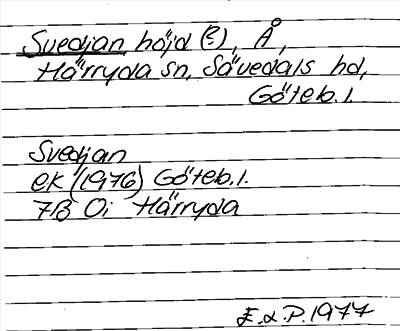 Svedjan höjd (?), Å,
Härryda sn, Sävedals hd,
Göteb. l.
Svedjan
ek (1976) Göteb. l.
7B 0i Härryda
E.d.P. 1977